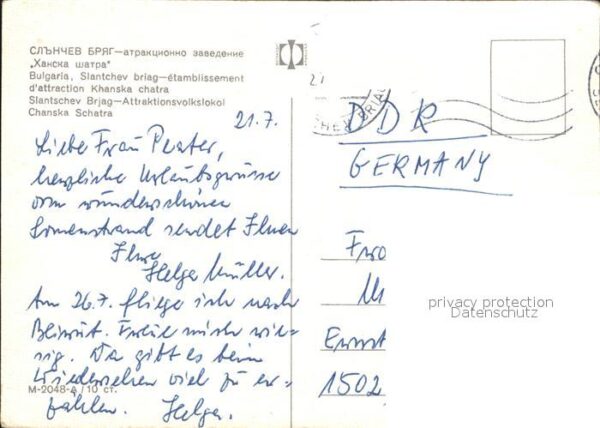 СЛЪНЧЕВ БРЯГ—атракционно заведение
„Ханска шатра“
Bulgaria, Slantchev briag—étamblissement
d'attraction Khanska chatra
Slantschev Brjag—Attraktionsvolkslokol
Chanska Schatra
21.7.
Liebe Frau
herzliche Urlaubsgrüsse
vom wunderschönen
Sonnenstrand sendet Ihnen
Ihre
Helga Müller.
Am 26.7. fliege ich nach
Beirut. Freue mich rie-
sig. Da gibt es beim
Wiedersehen viel zu er-
zählen. Helga.
М-2048-А / 10 ст.
DDR
GERMANY
Fra
M
Ernst
1502
privacy protection
Datenschutz